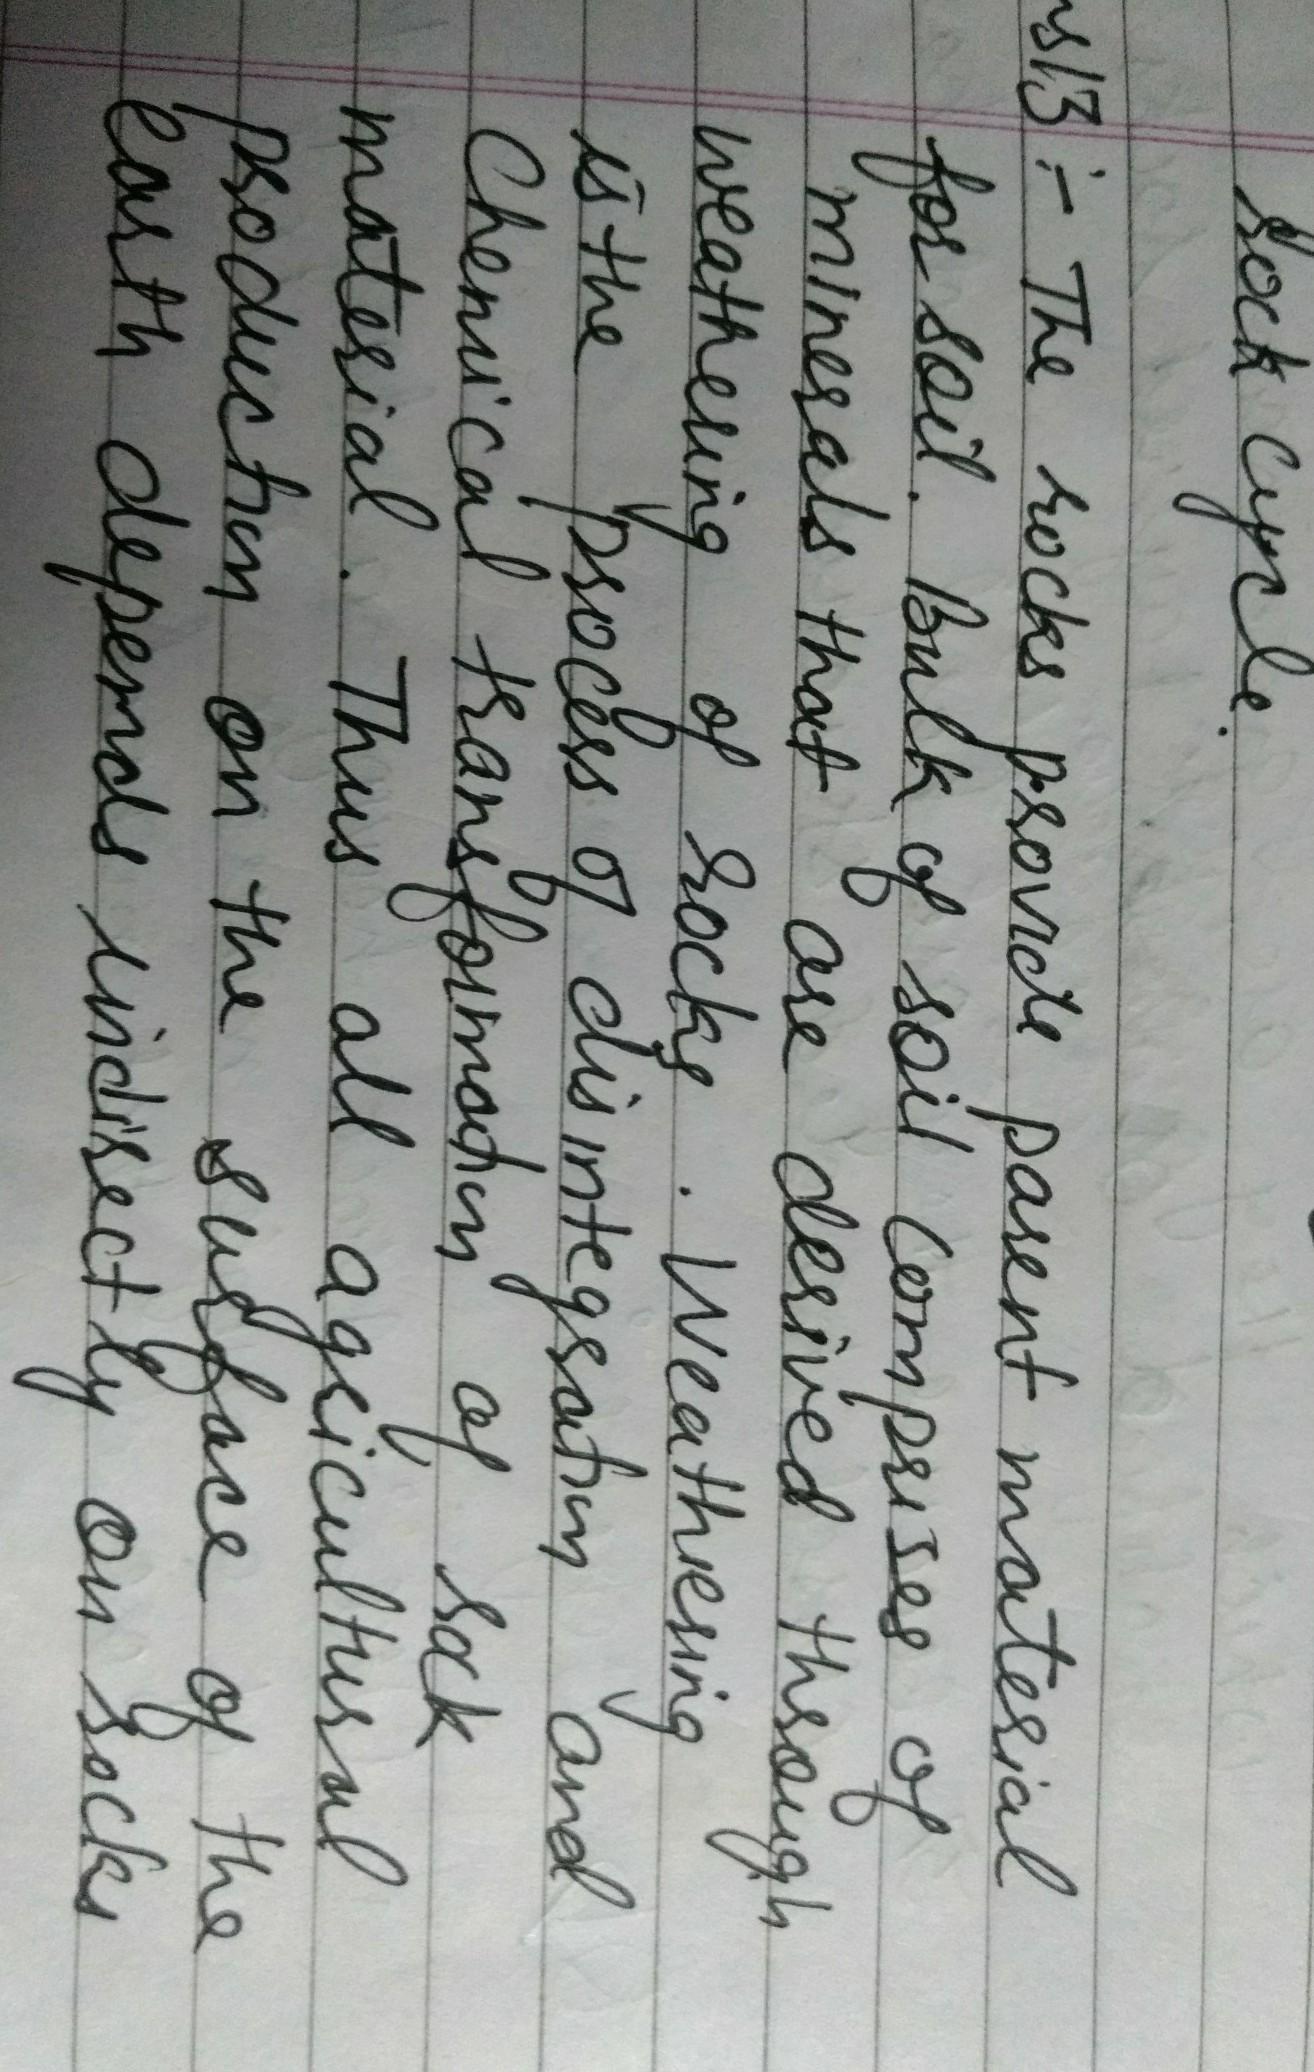 Rock cycle.
ns13:- The rocks provide parent material
for soil. Bulk of soil comprises of
minerals that are derived through
weathering of rocks. Weathering
is the process of disintegration and
Chemical transformation of rock
material. Thus all agricultural
production on the surface of the
earth depends indirectly on rocks